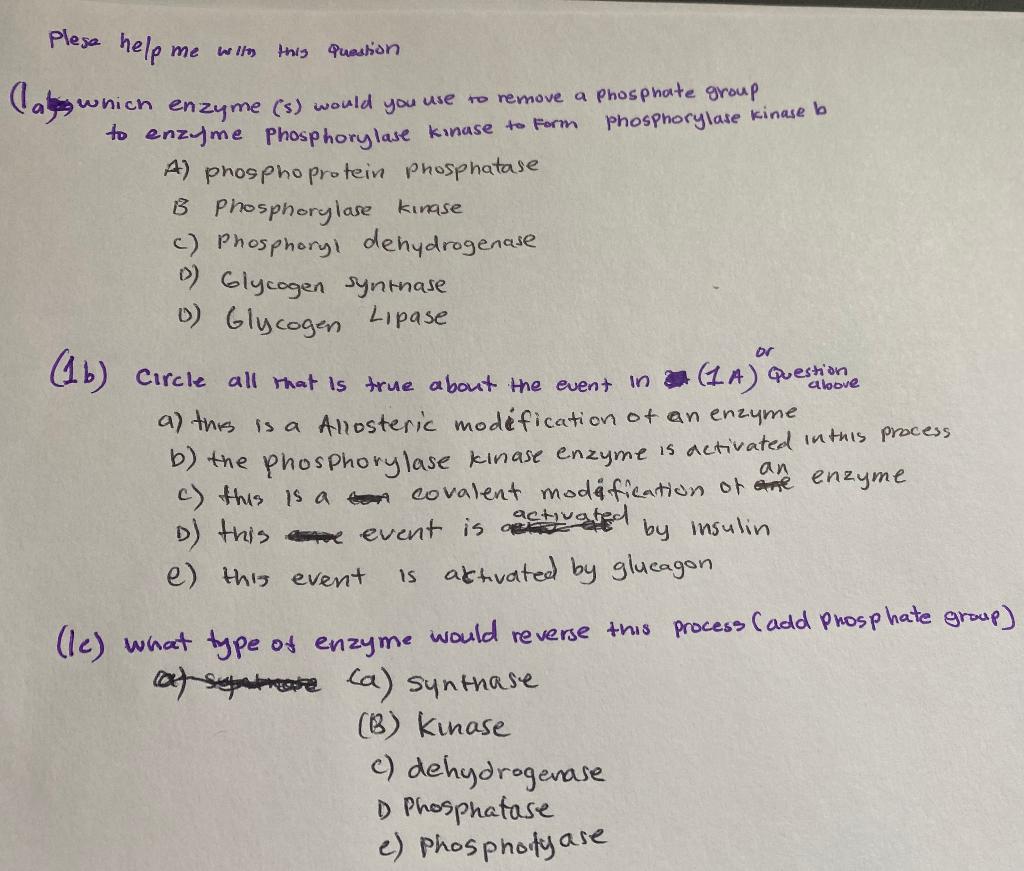 Plese help me with this Question
(1a) which enzyme (s) would you use to remove a phosphate group
to enzyme Phosphorylase kinase to Form phosphorylase kinase b
A) phosphoprotein phosphatase
B Phosphorylase kinase
C) Phosphoryl dehydrogenase
D) Glycogen synthase
D) Glycogen Lipase
(1b) Circle all that is true about the event in (1A) or Question above
a) this is a Allosteric modification of an enzyme
b) the phosphorylase kinase enzyme is activated in this process
c) this is a covalent modification of an enzyme
D) this event is activated by insulin
e) this event is activated by glucagon
(1c) what type of enzyme would reverse this process (add phosphate group)
(a) synthase
(B) kinase
c) dehydrogenase
D Phosphatase
e) phosphotyase